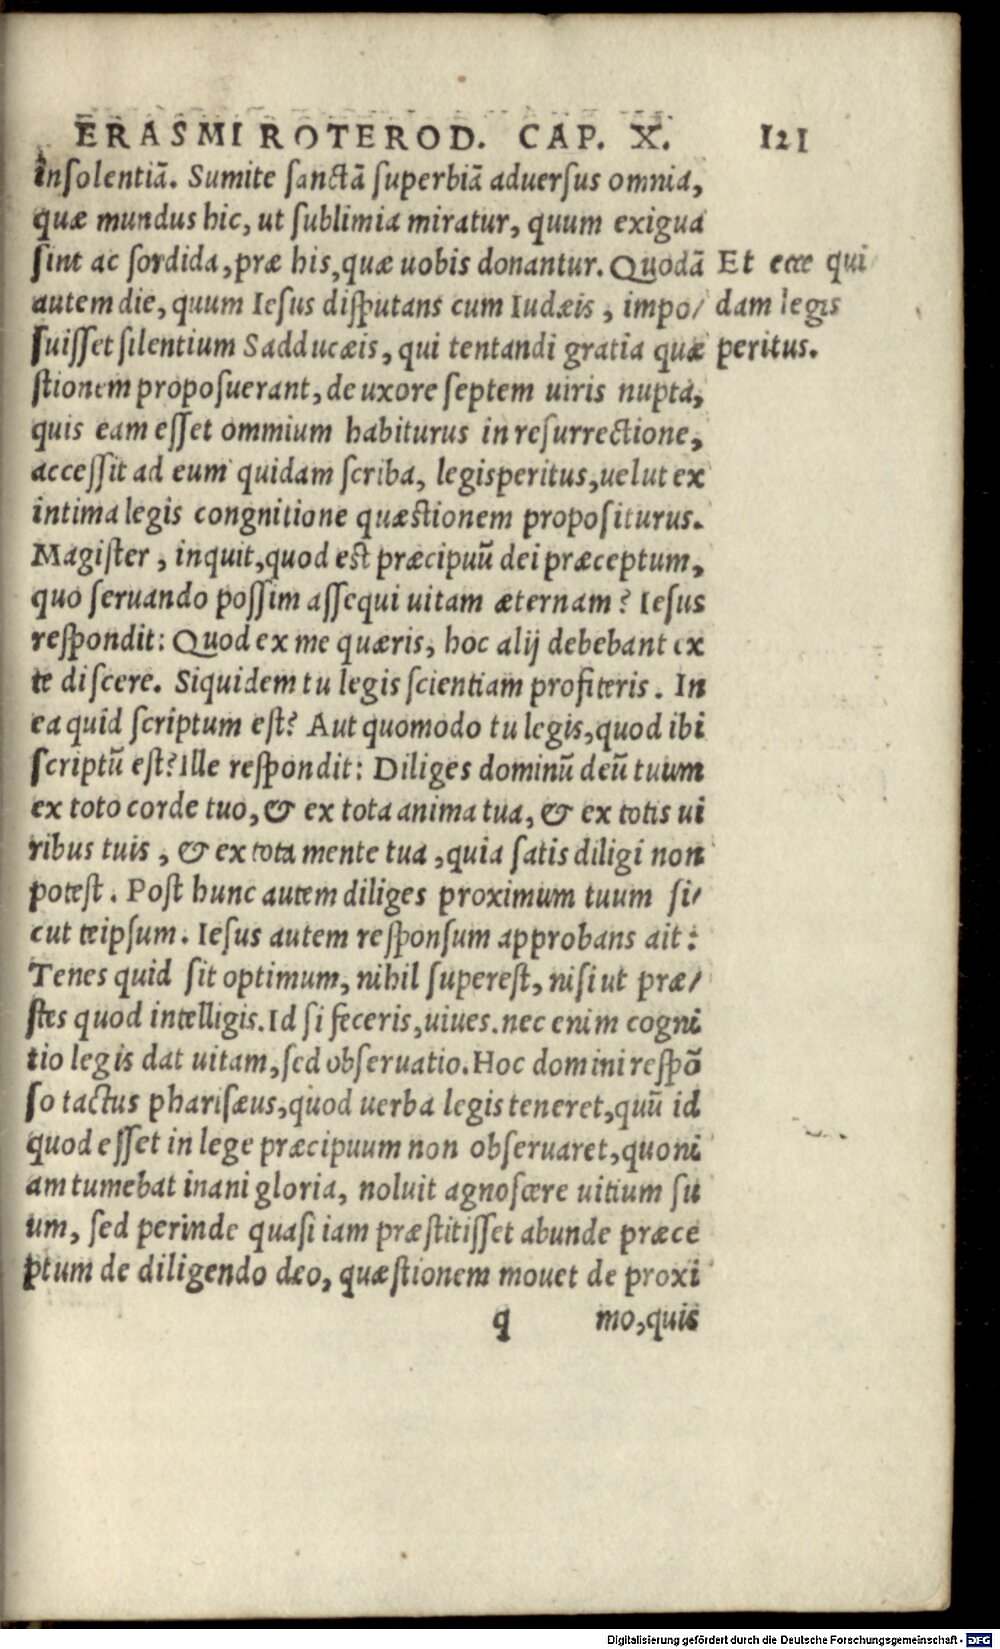 ERASMI ROTEROD. CAP. X. 121
insolentiā. Sumite sanctā superbiā aduersus omnia,
quæ mundus hic, ut sublimia miratur, quum exigua
sint ac sordida, præ his, quæ uobis donantur. Quodā
autem die, quum Iesus disputans cum Iudæis, impo/
suisset silentium Sadducæis, qui tentandi gratia quæ
stionem proposuerant, de uxore septem uiris nupta,
quis eam esset ommium habiturus in resurrectione,
accessit ad eum quidam scriba, legisperitus, uelut ex
intima legis congnitione quæstionem propositurus.
Magister, inquit, quod est præcipuū dei præceptum,
quo seruando possim assequi uitam æternam? Iesus
respondit: Quod ex me quæris, hoc alij debebant ex
te discere. Siquidem tu legis scientiam profiteris. In
ea quid scriptum est? Aut quomodo tu legis, quod ibi
scriptū est? Ille respondit: Diliges dominū deū tuum
ex toto corde tuo, & ex tota anima tua, & ex totis ui
ribus tuis, & ex tota mente tua, quia satis diligi non
potest. Post hunc autem diliges proximum tuum si/
cut teipsum. Iesus autem responsum approbans ait:
Tenes quid sit optimum, nihil superest, nisi ut præ/
stes quod intelligis. Id si feceris, uiues. nec enim cogni
tio legis dat uitam, sed obseruatio. Hoc domini respō
so tactus pharisæus, quod uerba legis teneret, quū id
quod esset in lege præcipuum non obseruaret, quoni
am tumebat inani gloria, noluit agnoscere uitium su
um, sed perinde quasi iam præstitisset abunde præce
ptum de diligendo deo, quæstionem mouet de proxi
q mo, quis
Et ecce qui
dam legis
peritus.
Digitalisierung gefördert durch die Deutsche Forschungsgemeinschaft - DFG